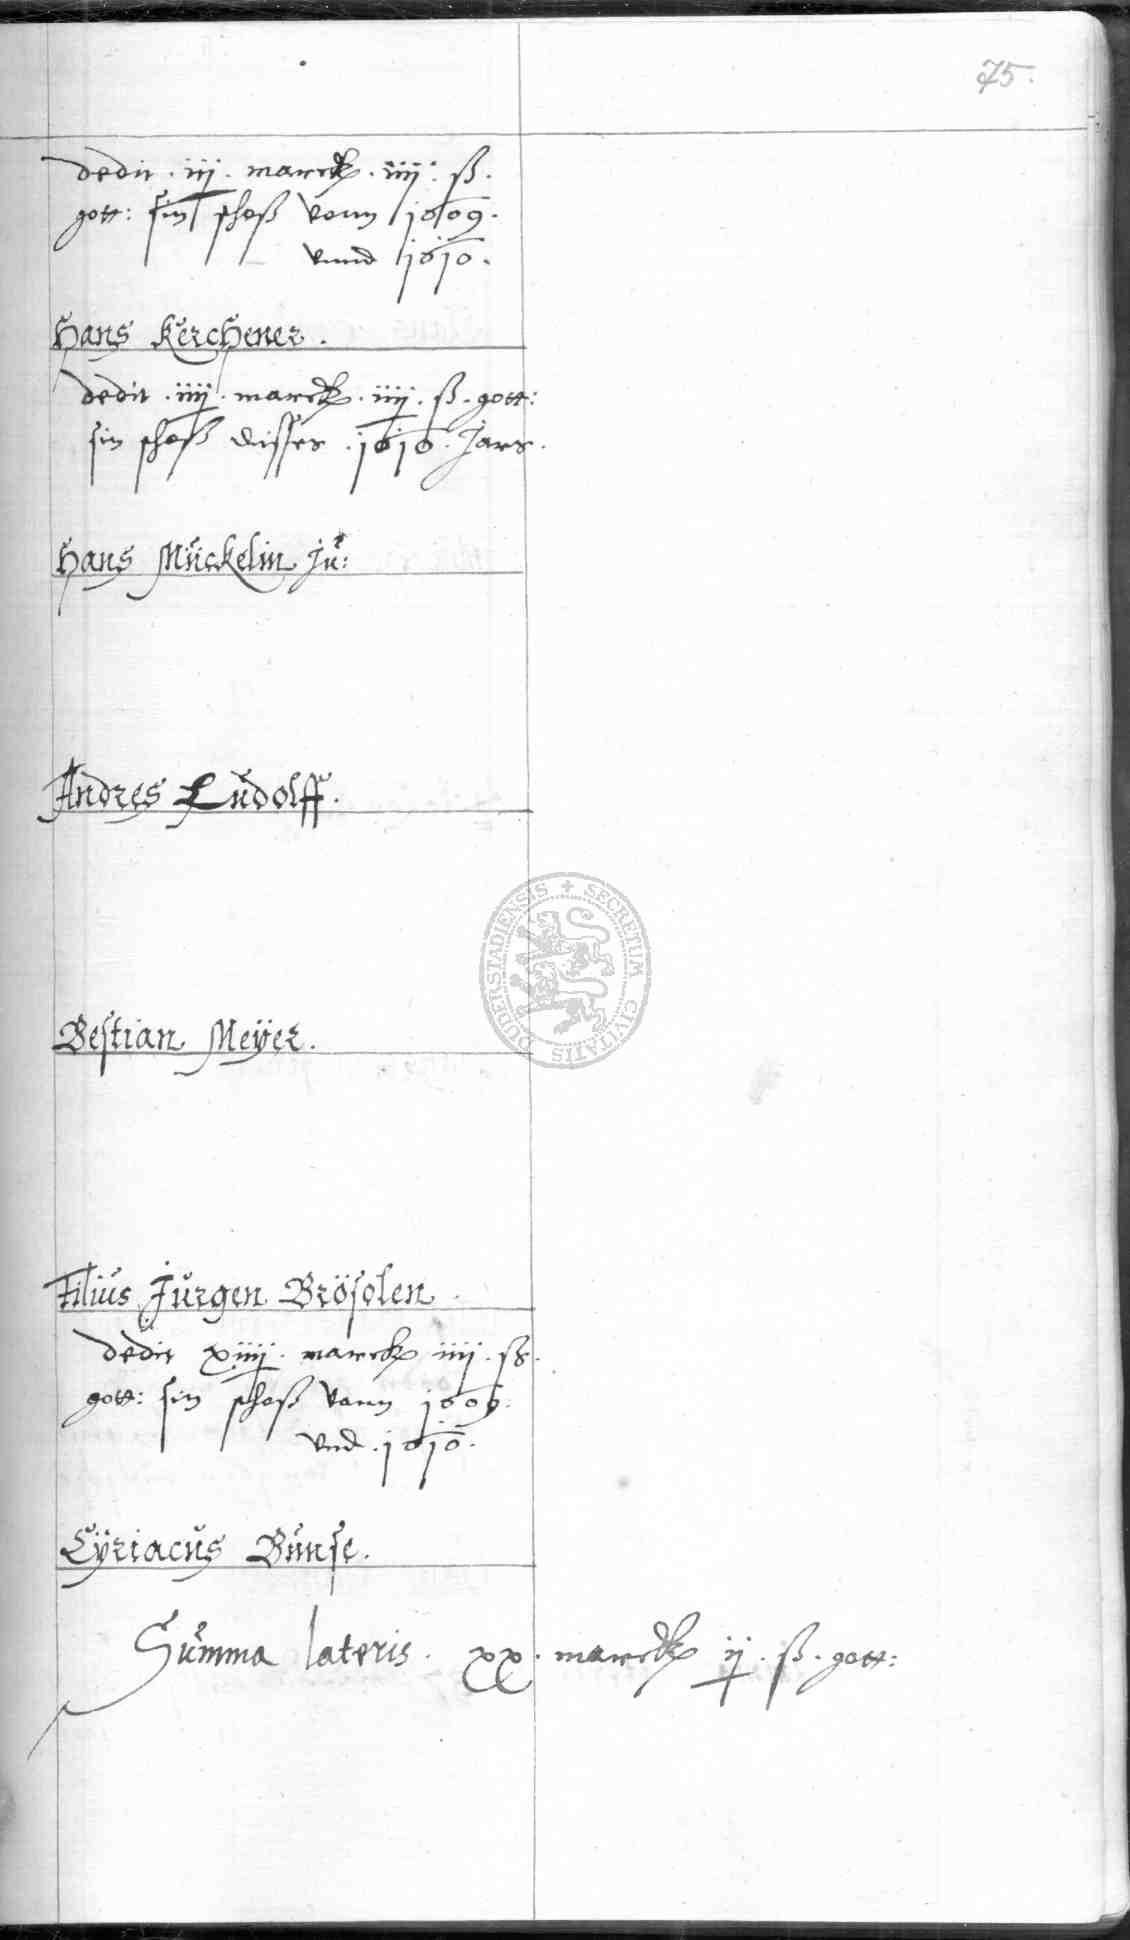 75.
dedit . iij . marck . iiij : ß .
gott : sin schoß vonn 1609 .
vnnd 1610 .
Hans Kerchener .
dedit . iiij . marck . iiij . ß . gott :
sin schoß disses . 1610 . Jars .
Hans Mückelin Ju :
Andres Ludolff .
Bestian Meÿer .
SECRETUM CIVITATIS DUDERSTADIENSIS
Filius Jurgen Brösolen .
dedit xiiij . marck iiij . ß .
gott : sin schoß vonn 1609 .
vnd . 1610 .
Cÿriacus Bunse .
Summa lateris . xx . marck ij . ß . gott :